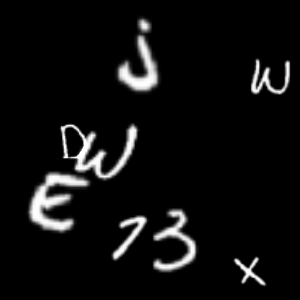 j
W
D W
E
1 3
x